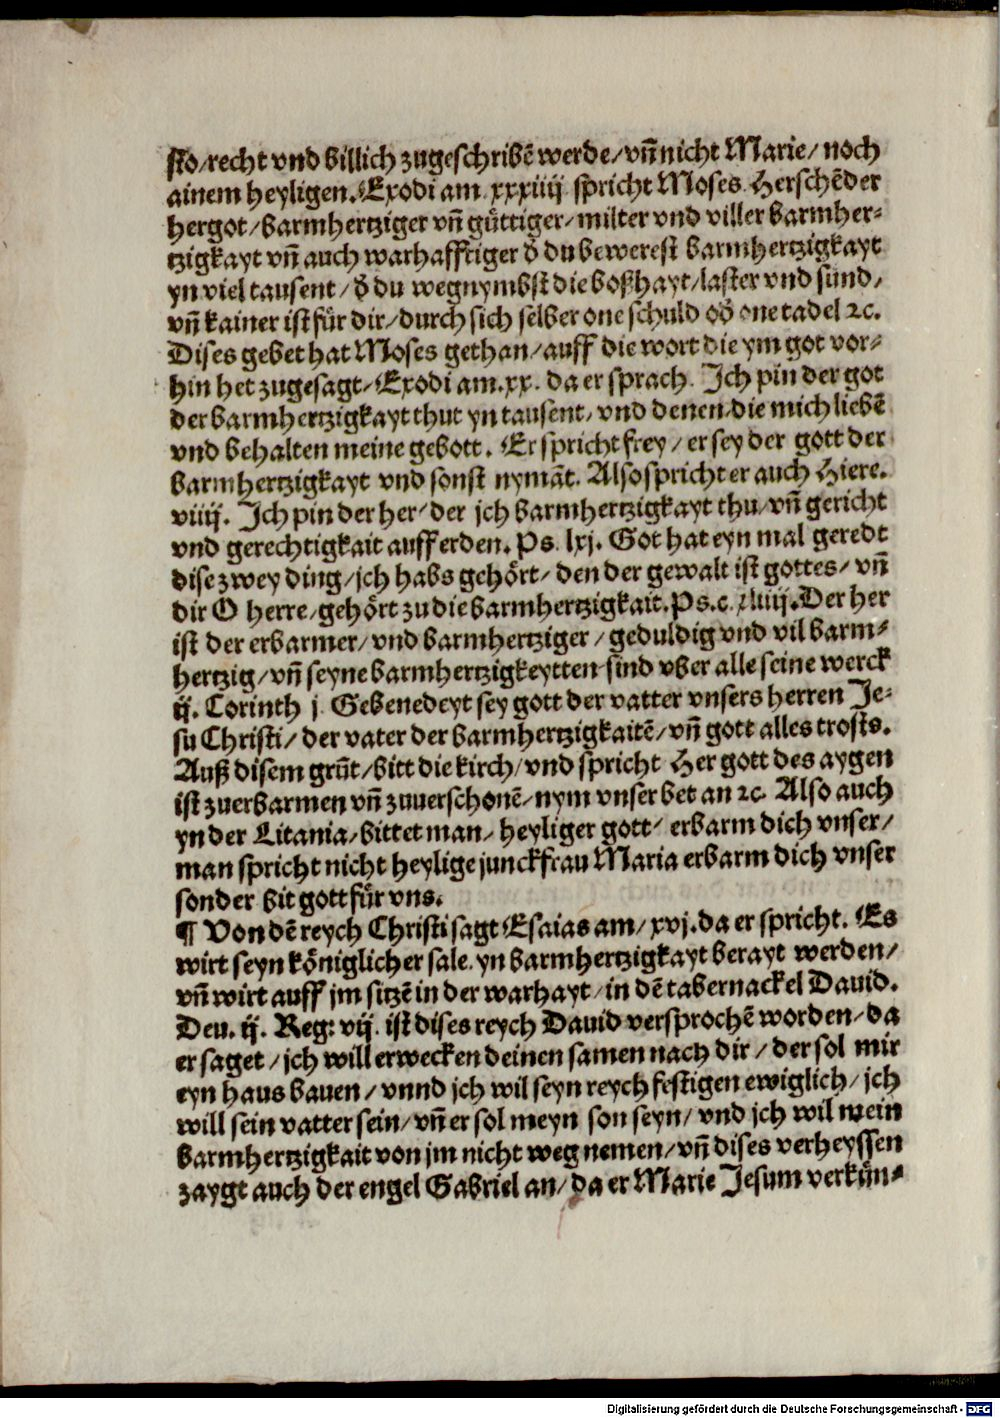 sto/recht vnd billich zugeschribē werde/vn̄ nicht Marie/noch
ainem heyligen. Exodi am xxxiiij spricht Moses. Herschēder
hergot/barmhertziger vn̄ gůttiger/milter vnd viller barmher-
tzigkayt vn̄ auch warhafftiger d̄ du bewerest barmhertzigkayt
yn viel tausent/d̄ du wegnymbst die boßhayt/laster vnd sünd/
vn̄ kainer ist für dir/durch sich selber one schuld od̄ one tadel ꝛc.
Dises gebet hat Moses gethan/auff die wort die ym got vor-
hin het zugesagt/Exodi am.xx. da er sprach. Ich pin der got
der barmhertzigkayt thut yn tausent/vnd denen/die mich liebē
vnd behalten meine gebott. Er spricht frey/er sey der gott der
barmhertzigkayt vnd sonst nymāt. Also spricht er auch Hiere.
viiij. Ich pin der her/der jch barmhertzigkayt thu/vn̄ gericht
vnd gerechtigkait auff erden. Ps. lxj. Got hat eyn mal geredt
dise zwey ding/jch habs gehört/den der gewalt ist gottes/vn̄
dir O herre/gehört zu die barmhertzigkait. Ps.c. xliiij. Der her
ist der erbarmer/vnd barmhertziger/geduldig vnd vil barm-
hertzig/vn̄ seyne barmhertzigkeytten sind vber alle seine werck
ij. Corinth j. Gebenedeyt sey gott der vatter vnsers herren Je-
su Christi/der vater der barmhertzigkaitē/vn̄ gott alles trosts.
Auß disem grūt/bitt die kirch/vnd spricht Her gott des aygen
ist zuerbarmen vn̄ zuuerschonē/nym vnser bet an ꝛc. Also auch
yn der Litania/bittet man/heyliger gott/erbarm dich vnser/
man spricht nicht heylige junckfrau Maria erbarm dich vnser
sonder bit gott für vns.
¶ Von dē reych Christi sagt Esaias am/xvj. da er spricht. Es
wirt seyn königlicher sale. yn barmhertzigkayt berayt werden/
vn̄ wirt auff jm sitzē in der warhayt/in dē tabernackel Dauid.
Deu. ij. Reg: vij. ist dises reych Dauid versprochē worden/da
er saget/jch will erwecken deinen samen nach dir/der sol mir
eyn haus bauen/vnnd jch wil seyn reych festigen ewiglich/jch
will sein vatter sein/vn̄ er sol meyn son seyn/vnd jch wil mein
barmhertzigkait von jm nicht weg nemen/vn̄ dises verheyssen
zaygt auch der engel Gabriel an/da er Marie Jesum verkün-
Digitalisierung gefördert durch die Deutsche Forschungsgemeinschaft - DFG